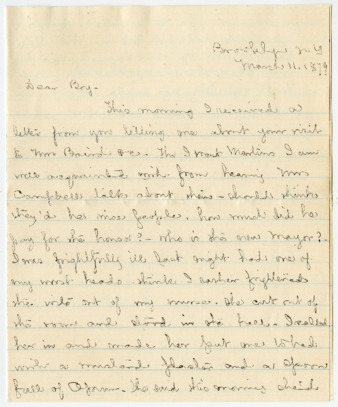 Brooklyn N.Y
March 11. 1879
Dear Boy-
This morning I received a
letter from you telling me about your visit
to Mrs Baird &c. The I am
well acquainted with from hearing Mrs
Campbell talk about them - should think
they'd be nice people. how much did he
pay for the house? - who is the new Mayor?
I was frightfully ill last night had one of
my worst heads think I rather frightened
the wits out of my nurse. she cut out of
the room and stood in the hall. I called
her in and made her put me
with a mustard plaster and a spoon
full of opium. she said this morning